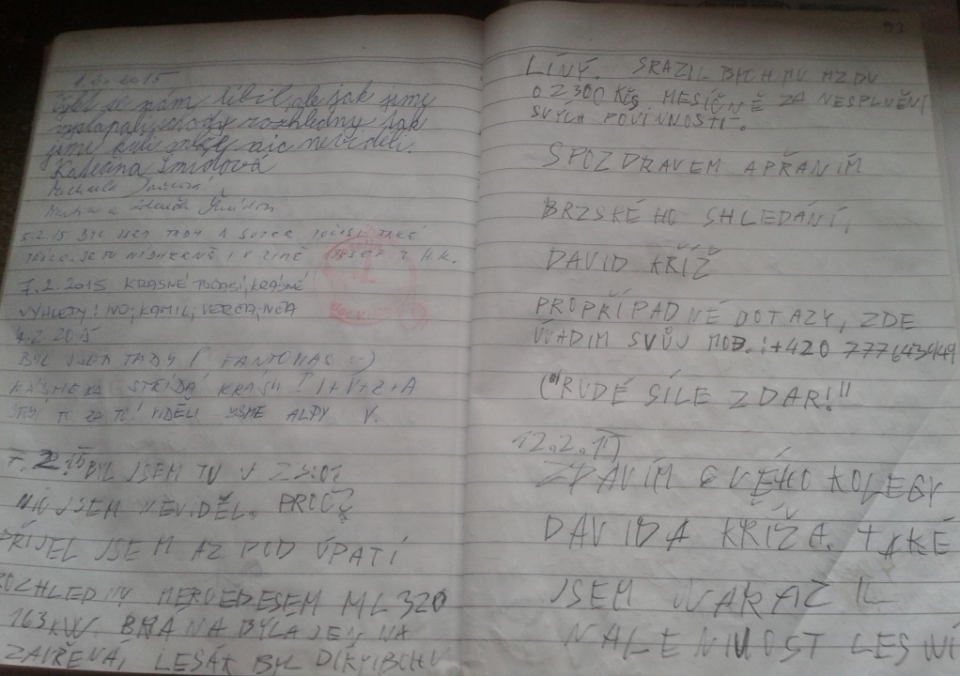 1.2. 2015
výlet se nám líbil, ale jak jsme
vylapaly schody rozhledny tak
jsme kvůli mlze nic neviděli.
Kateřina Šmídová
Michaela
Zdeněk
5.2.15 BYL JSEM TADY A SUPER POČASÍ TAKÉ
I V ZIMĚ Z H.K.
7.2.2015 KRÁSNÉ POČASÍ, KRÁSNÉ
VÝHLEDY! IVO, KAMIL, VERČA, NĚA
4.2.2015
BYL JSEM TADY ( FANTOMAS :-)
NÁMAHA STŘÍDÁ KRÁSU I+V+Z+A
STOJÍ TO ZA TO! VIDĚLI JSME ALPY V.
7.2.15 BYL JSEM TU V 23:01
NIC JSEM NEVIDĚL. PROČ?
PŘIJEL JSEM AŽ POD ÚPATÍ
ROZHLEDNY MERCEDESEM ML 320
163 kW. BRÁNA BYLA JEN NA
ZAVŘENÁ, LESÁK BYL DÍKYBOHU
93
LÍNÝ. SRAZIL BYCH MU MZDU
O 2300 Kčs MĚSÍČNĚ ZA NESPLNĚNÍ
SVÝCH POVINNOSTÍ.
S POZDRAVEM A PŘÁNÍM
BRZSKÉHO SHLEDÁNÍ,
DAVID KŘÍŽ
PRO PŘÍPADNÉ DOTAZY, ZDE
UVÁDÍM SVŮJ MOB.: +420 777643449
("RUDÉ SÍLE ZDAR!"
12.2.15
ZDRAVÍM SVÉHO KOLEGY
DAVIDA KŘÍŽA. TAKÉ
JSEM MAKAČ !!
NA LENIVOST LESNÍ